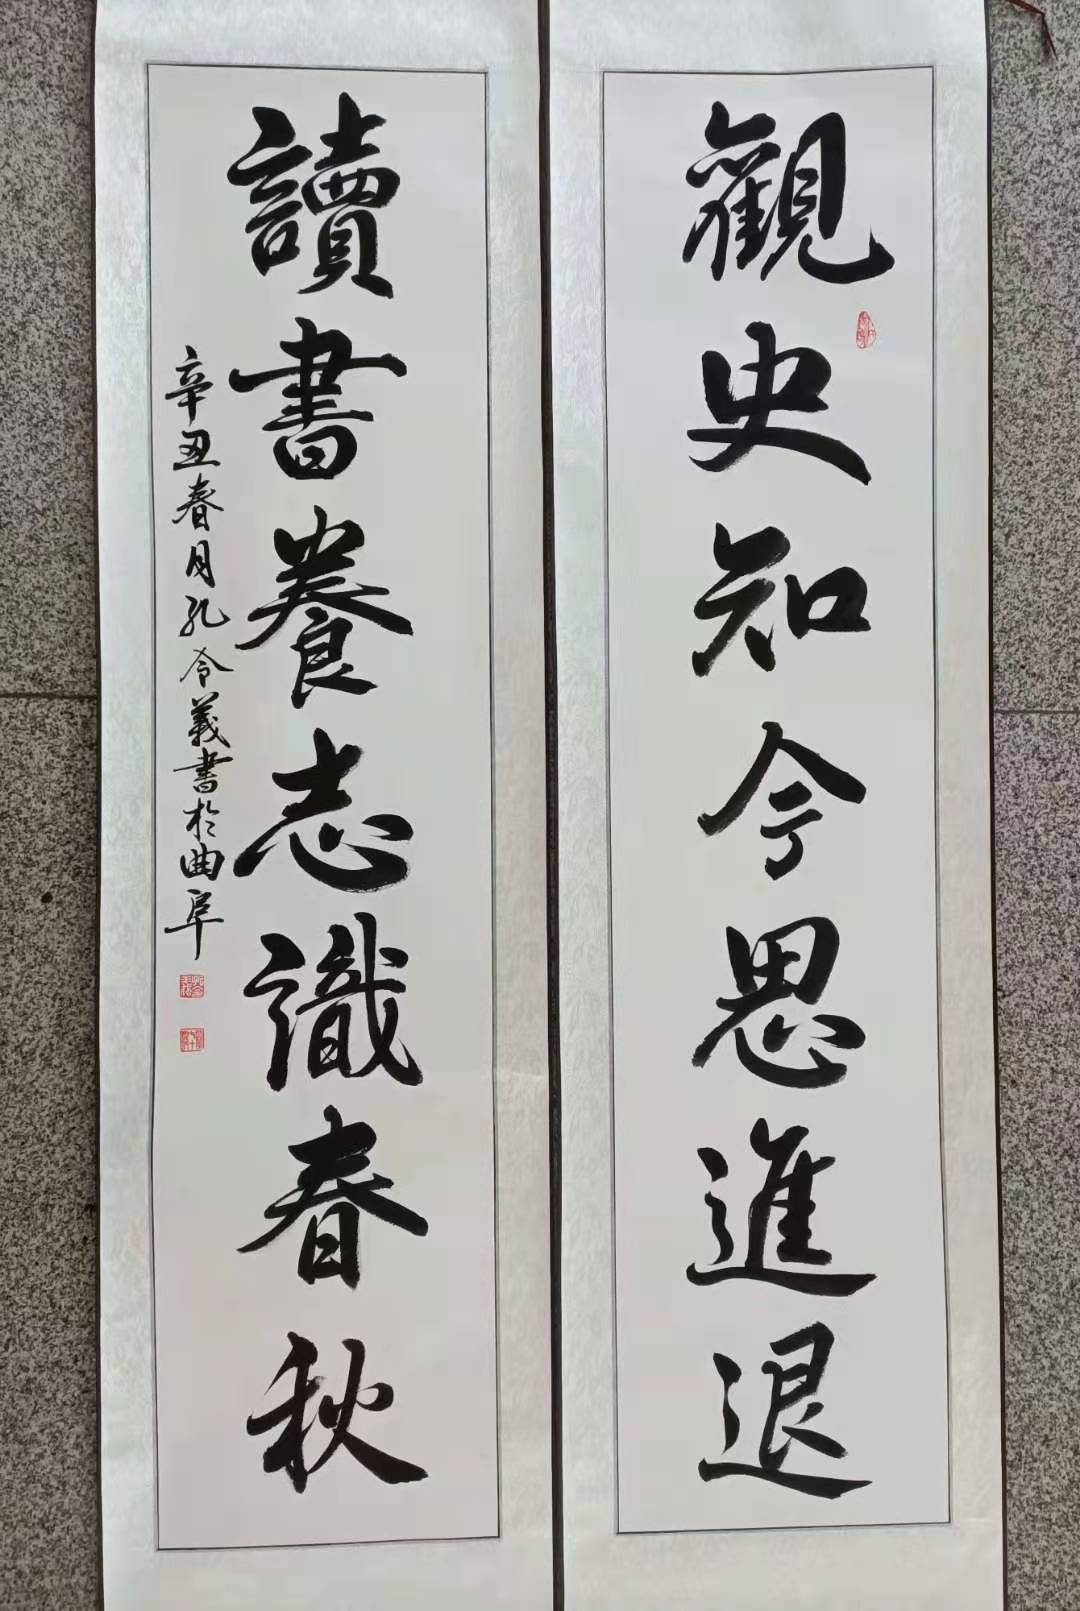 觀史知今思進退
讀書養志識春秋
辛丑春月孔令義書於曲阜